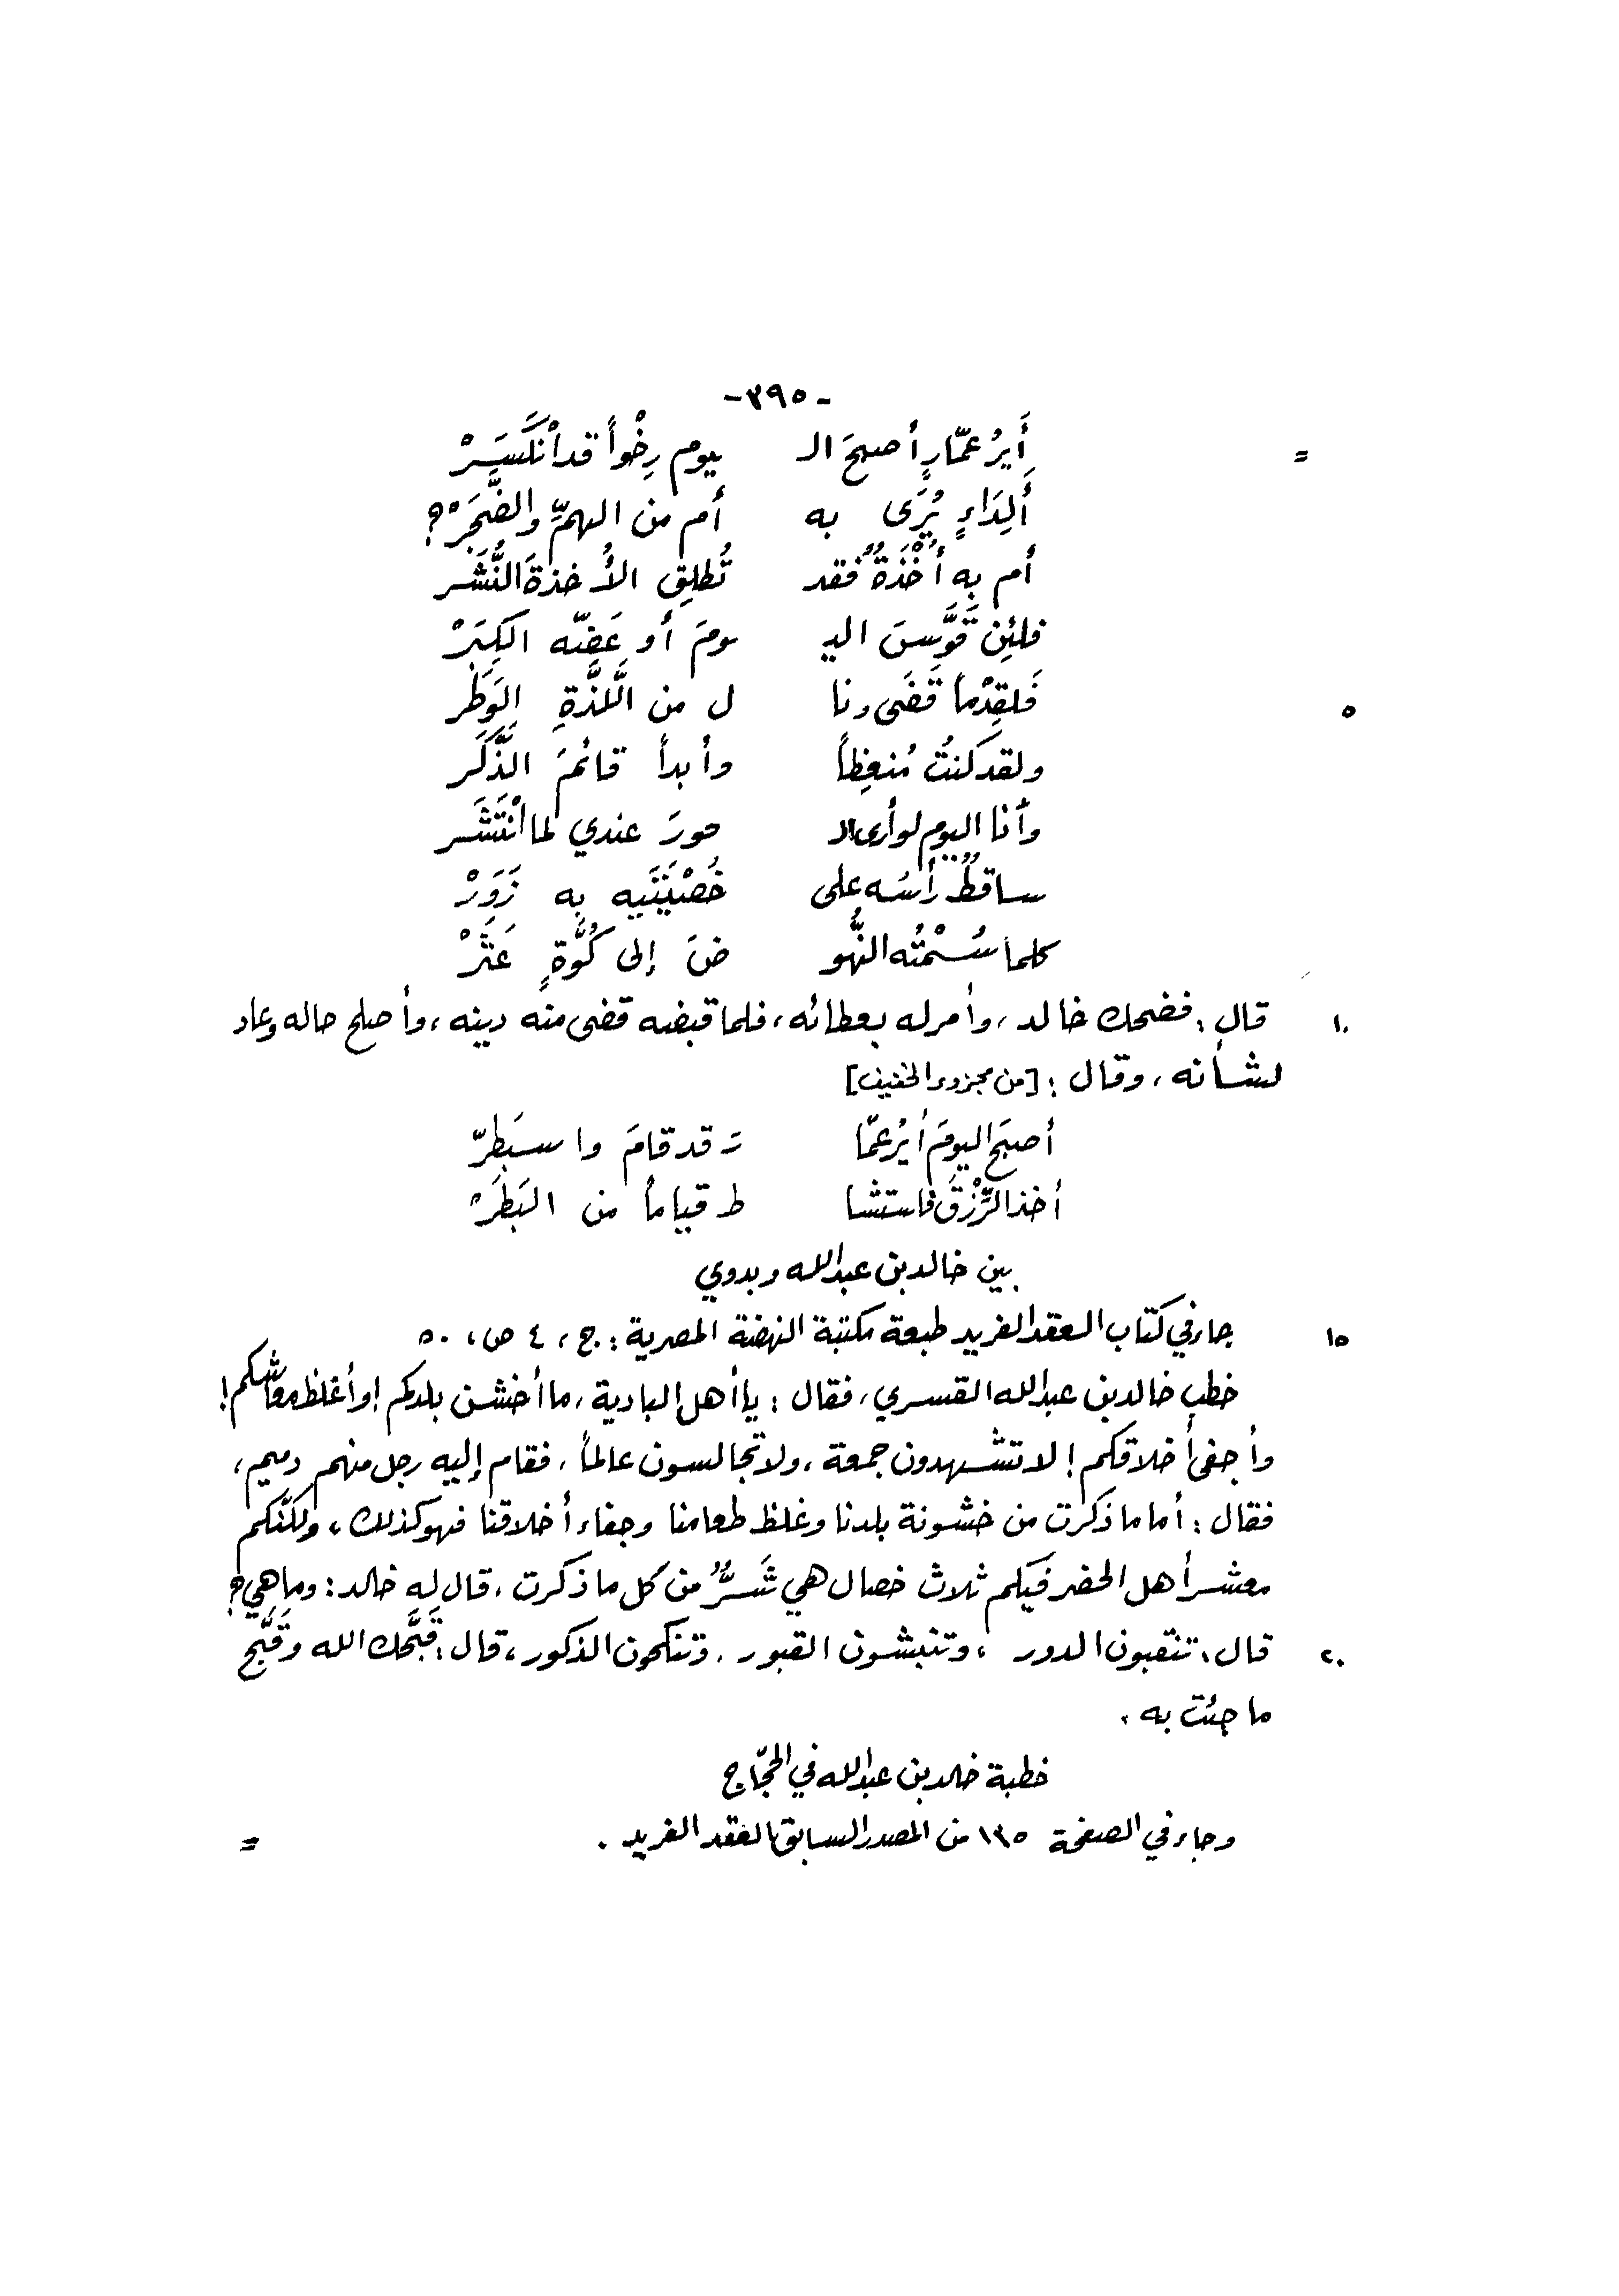 -٣٩٥-
= أَيرُ عمّارٍ أصبحَ الـ يوم رِخْواً قد انكَسَرْ
أَلِدَاءٍ يُرَى به أم من الهمِّ والضَّجَرْ؟
أم به أُخْذَةٌ فقد تُطلِق الأُخذةَ النُّشَر
فلئِن قَوَّسَ اليـ ـومَ أو عَضّه الكِبَرْ
٥ فَلقِدْماً قَضَى ونا ل من اللَّذَّةِ الوَطَر
ولقد كنتُ مُنعِظاً وأبداً قائمَ الذَّكَر
وأنا اليوم لو أرى الـ حورَ عندي لما انْتَشَر
ساقطٌ رأسُه على خُصْيَتَيه به زَوَرْ
كلما سُمْتُه النُّهو ضَ إلى كُوَّةٍ عَثَرْ
١٠ قال: فضحك خالد، وأمر له بعطائه، فلما قبضه قضى منه دينه، وأصلح حاله وعاد
لشأنه، وقال: [من مجزوء الخفيف]
أصبَح اليومَ أيرُ عمّا رَ قد قامَ واسبَطرّ
أخذ الرِّزْقَ فاستشا ط قياماً من البَطَرْ
بين خالد بن عبدالله وبدوي
١٥ جاء في كتاب العقد الفريد طبعة مكتبة النهضة المصرية: ج، ٤ ص، ٥٠
خطب خالد بن عبدالله القسري، فقال: يا أهل البادية، ما أخشن بلدكم! وأغلظ معاشكم!
وأجفى أخلاقكم! لا تشهدون جمعة، ولا تجالسون عالماً، فقام إليه رجل منهم دميم،
فقال: أما ما ذكرت من خشونة بلدنا وغلظ طعامنا وجفاء أخلاقنا فهو كذلك، ولكنّكم
معشر أهل الحضر فيكم ثلاث خصال هي شَرٌّ من كل ما ذكرت، قال له خالد: وما هي؟
٢٠ قال: تنقبون الدور، وتنبشون القبور، وتنكحون الذكور، قال: قَبَّحك الله وقَبَّح
ما جئت به.
خطبة خالد بن عبدالله في الحجّاج
وجاء في الصفحة ١٣٥ من المصدر السابق العقد الفريد. =